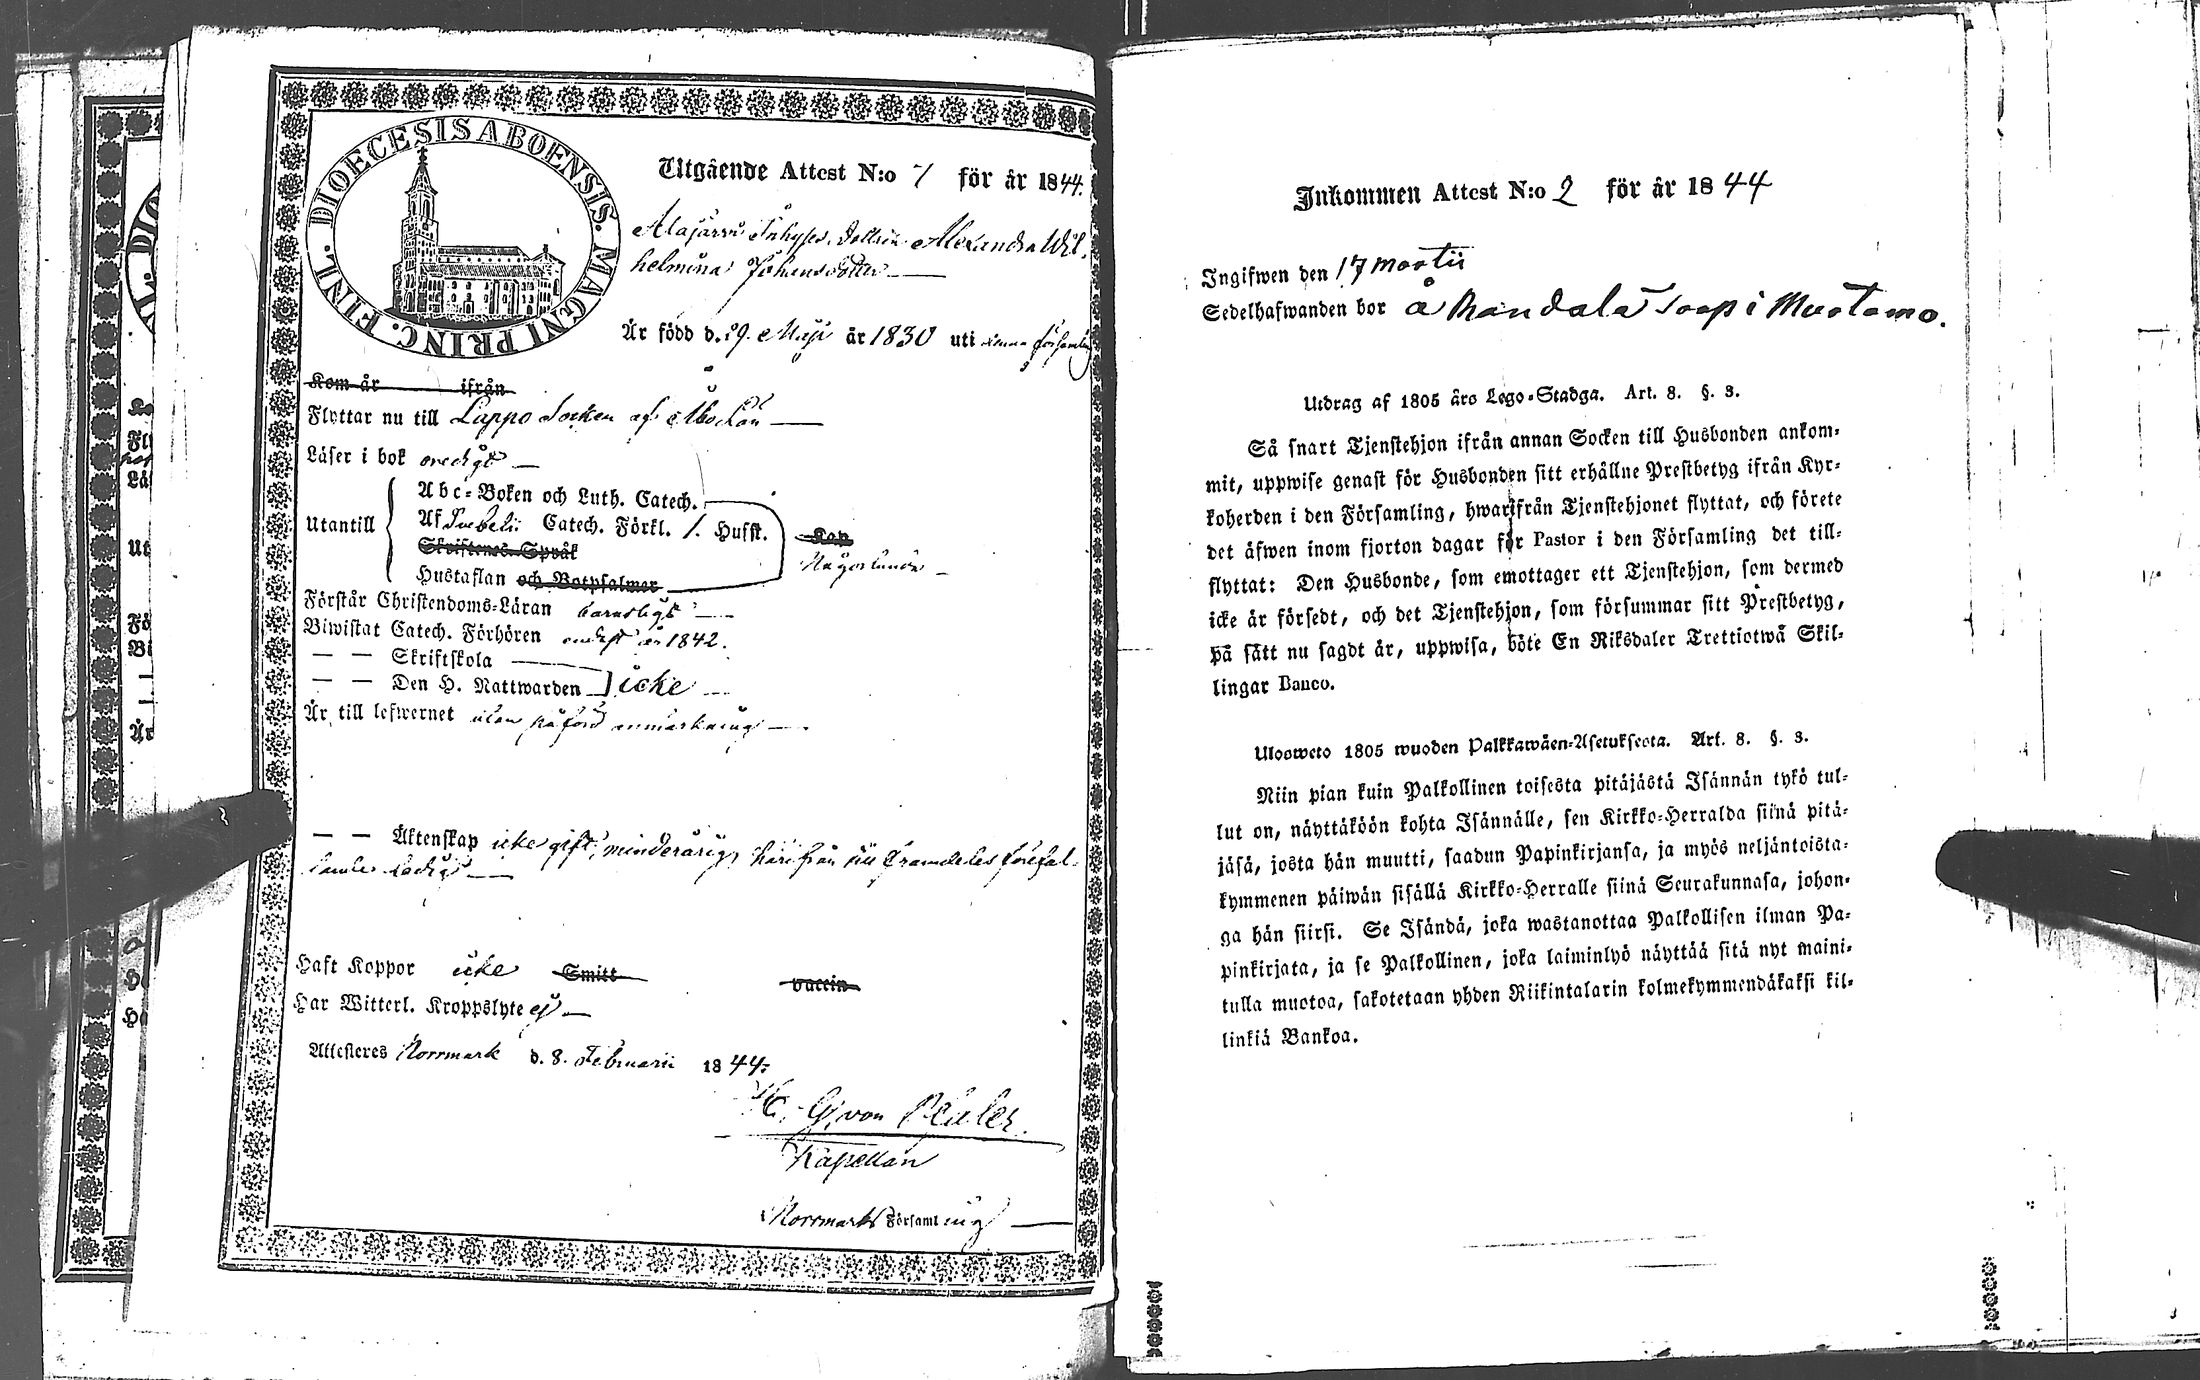 DIOECESIS ABOENSIS. MAGNI PRINC. FINL.
Utgående Attest N:o 7 för år 1844.
Alajärvi Alexandra Wil-
helmina Johansdotter
Är född d. 29. Maji år 1830 uti denna församling
Kom år ifrån
Flyttar nu till Lappo Socken af Åbo Län
Läser i bok oredigt
Utantill
Abc-Boken och Luth. Catech.
Af Svebelii Catech. Förkl. 1. Husst.
Skriftenes Språk
Hustaflan och Botpsalmer
Kan
Någorlunda
Förstår Christendoms-Läran barnsligt
Biwistat Catech. Förhören endast år 1842.
— — Skriftskola
— — Den H. Nattwarden icke
Är till lefwernet utan påförd anmärkning
— — Äktenskap icke gift, minderårig, härifrån till framdeles förefal-
lande ledig
Haft Koppor icke Smitt vaccin
Har Witterl. Kroppslyte ej
Attesteres Norrmark d. 8. Februarii 1844.
G. von Pfaler.
Kapellan
Norrmarks Församling
Inkommen Attest N:o 2 för år 1844
Ingifwen den 17 Martii
Sedelhafwanden bor å Mandala i Mustamo.
Utdrag af 1805 års Lego-Stadga. Art. 8. §. 3.
Så snart Tjenstehjon ifrån annan Socken till Husbonden ankom-
mit, uppwise genast för Husbonden sitt erhållne Prestbetyg ifrån Kyr-
koherden i den Församling, hwarifrån Tjenstehjonet flyttat, och förete
det äfwen inom fjorton dagar för Pastor i den Församling det till-
flyttat: Den Husbonde, som emottager ett Tjenstehjon, som dermed
icke är försedt, och det Tjenstehjon, som försummar sitt Prestbetyg,
på sätt nu sagdt är, uppwisa, böte En Riksdaler Trettiotwå Skil-
lingar Banco.
Ulosweto 1805 wuoden Palkkawäen-Asetuksesta. Art. 8. §. 3.
Niin pian kuin Palkollinen toisesta pitäjästä Isännän tykö tul-
lut on, näyttäköön kohta Isännälle, sen Kirkko-Herralda siinä pitä-
jäsä, josta hän muutti, saadun Papinkirjansa, ja myös neljäntoista-
kymmenen päiwän sisällä Kirkko-Herralle siinä Seurakunnasa, johon-
ga hän siirsi. Se Isändä, joka wastanottaa Palkollisen ilman Pa-
pinkirjata, ja se Palkollinen, joka laiminlyö näyttää sitä nyt maini-
tulla muotoa, sakotetaan yhden Riikintalarin kolmekymmendäkaksi kil-
linkiä Bankoa.